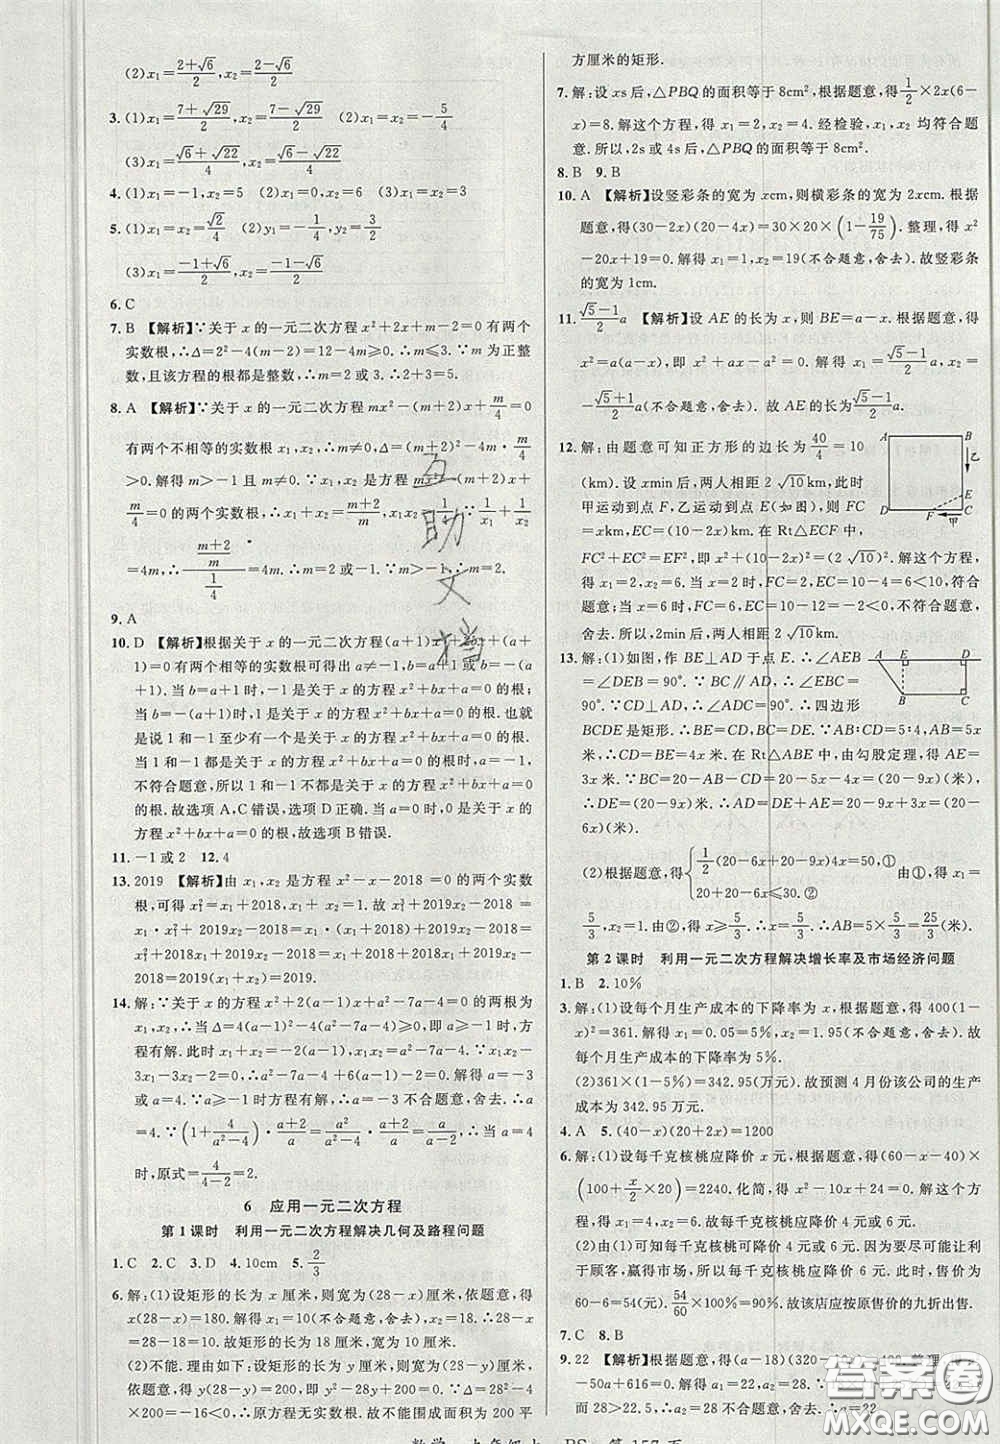 (2)x₁=(2+√6)/2,x₂=(2-√6)/2
3.(1)x₁=(7+√29)/2,x₂=(7-√29)/2 (2)x₁=x₂=-5/4
(3)x₁=(√6+√22)/4,x₂=(√6-√22)/4
4.(1)x₁=-1,x₂=5 (2)x₁=0,x₂=6 (3)x₁=x₂=3
5.(1)x₁=x₂=√2/4 (2)y₁=-1/4,y₂=3/4
(3)x₁=(-1+√6)/2,x₂=(-1-√6)/2
6.C
7.B 【解析】∵关于 x 的一元二次方程 x²+2x+m-2=0 有两个
实数根,∴Δ=2²-4(m-2)=12-4m≥0.∴m≤3.∵m 为正整
数,且该方程的根都是整数,∴m=2或3.∴2+3=5.
8.A 【解析】∵关于 x 的一元二次方程 mx²-(m+2)x+m/4=0
有两个不相等的实数根 x₁,x₂,∴m≠0,Δ=(m+2)²-4m·m/4
>0.解得 m>-1且 m≠0.∵x₁,x₂ 是方程 mx²-(m+2)x+
m/4=0的两个实数根,∴x₁+x₂=(m+2)/m,x₁x₂=1/4.∵1/x₁+1/x₂
=4m,∴((m+2)/m)/(1/4)=4m.∴m=2或-1.∵m>-1,∴m=2.
9.A
10.D 【解析】根据关于 x 的一元二次方程(a+1)x²+2bx+(a+
1)=0有两个相等的实数根可得出 a≠-1,b=a+1或b=-(a+
1).当 b=a+1时,-1是关于 x 的方程 x²+bx+a=0的根;
当 b=-(a+1)时,1是关于 x 的方程 x²+bx+a=0的根.也就
是说 1和-1至少有一个是关于 x 的方程 x²+bx+a=0的根.
当 1和-1都是关于 x 的方程 x²+bx+a=0的根时,a=-1,
不符合题意,所以 1和-1不都是关于 x 的方程 x²+bx+a=
0的根.故选项 A,C错误,选项 D正确.当 a=0时,0是关于 x 的
方程 x²+bx+a=0的根,故选项 B错误.
11.-1或2 12.4
13.2019 【解析】由 x₁,x₂ 是方程 x²-x-2018=0的两个实数
根,可得 x₁²=x₁+2018,x₁+x₂=1.故 x₁³+2019x₂-2018=
x₁·x₁²+2019x₂-2018=x₁·(x₁+2018)+2019x₂-2018=
x₁²+2018x₁+2019x₂-2018=x₁+2018+2018x₁+2019x₂-
2018=2019(x₁+x₂)=2019.
14.解:∵关于 x 的方程 x²+2(a-1)x+a²-7a-4=0的两根为
x₁,x₂,∴当 Δ=4(a-1)²-4(a²-7a-4)≥0,即 a≥-1时,方
程有解.此时 x₁+x₂=-2(a-1),x₁x₂=a²-7a-4.∵x₁x₂-
3x₁-3x₂-2=0,∴a²-7a-4+6(a-1)-2=0.解得 a=-3
或 a=4.∵a≥-1时方程有解,∴a=-3不合题意,舍去.∴a
=4.∵(1+4/(a²-4))·(a+2)/a=a²/(a²-4)·(a+2)/a=a/(a-2),∴当 a=4
时,原式=4/(4-2)=2.
6 应用一元二次方程
第1课时 利用一元二次方程解决几何及路程问题
1.C 2.C 3.D 4.10cm 5.2/3
6.解:(1)设矩形的长为 x 厘米,则宽为(28-x)厘米,依题意,得
x(28-x)=180.解得 x₁=10(不合题意,舍去),x₂=18.28-x
=28-18=10.故矩形的长为 18厘米,宽为 10厘米.
(2)不能.理由如下:设矩形的长为 y 厘米,则宽为(28-y)厘米,
依题意,得 y(28-y)=200,即 y²-28y+200=0.则Δ=28²-4
×200=-16<0,∴原方程无实数根.故不能围成面积为 200平
方厘米的矩形.
7.解:设 xs后,△PBQ的面积等于 8cm²,根据题意,得1/2×2x(6-
x)=8.解这个方程,得 x₁=2,x₂=4.经检验,x₁,x₂ 均符合题
意.所以,2s或 4s后,△PBQ的面积等于 8cm².
8.B 9.B
10.A 【解析】设竖彩条的宽为 xcm,则横彩条的宽为 2xcm.根据
题意,得(30-2x)(20-4x)=30×20×(1-19/75).整理,得 x²
-20x+19=0.解得 x₁=1,x₂=19(不合题意,舍去).故竖彩条
的宽为 1cm.
11.(√5-1)/2 a 【解析】设 AE的长为 x,则 BE=a-x.根据题意,得
x²=a(a-x),即 x²+ax-a²=0.解得 x₁=(√5-1)/2 a,x₂=
-(√5+1)/2 a(不符合题意,舍去).故 AE的长为(√5-1)/2 a.
12.解:由题意可知正方形的边长为40/4=10
(km).设 xmin后,两人相距 2√10km,此时
甲运动到点 F,乙运动到点 E(如图),则 FC
=xkm,EC=(10-2x)km.在 Rt△ECF中,
FC²+EC²=EF²,即 x²+(10-2x)²=(2√10)².解这个方程,
得 x₁=2,x₂=6.当 x=2时,FC=2,EC=10-4=6<10,符合
题意;当 x=6时,FC=6,EC=10-12=-2<0,不符合题意,
舍去.所以,2min后,两人相距 2√10km.
13.解:(1)如图,作 BE⊥AD于点 E.∴∠AEB
=∠DEB=90°.∵BC∥AD,∴∠EBC=
90°.∵CD⊥AD,∴∠ADC=90°.∴四边形
BCDE是矩形.∴BE=CD.∵CD:AB=5:4,∴CD=4x米,AB=5x
米.∴CD=BE=4x米.在 Rt△ABE中,由勾股定理,得 AE=
3x米.∵BC=20-AB-CD=20-5x-4x=20-9x(米),
∴DE=(20-9x)米.∴AD=20-9x+3x=(20-6x)(米).
(2)根据题意,得{1/2(20-6x+20-9x)·4x=50,①
20+20-6x≤30.② 由①,得 x₁=
5/3,x₂=1.由②,得 x≥5/3.∴x=5/3.∴AB=5x=5×5/3=25/3(米).
第2课时 利用一元二次方程解决增长率及市场经济问题
1.B 2.10%
3.解:(1)设每个月生产成本的下降率为 x,根据题意,得 400(1
-x)²=361.解得 x₁=0.05=5%,x₂=1.95(不合题意,舍去).故
每个月生产成本的下降率为 5%.
(2)361×(1-5%)=342.95(万元).故预测 4月份该公司的生产
成本为 342.95万元.
4.A 5.(40-x)(20+2x)=1200
6.解:(1)设每千克核桃应降价 x 元,根据题意,得(60-x-40)×
(100+x/2×20)=2240.化简,得 x²-10x+24=0.解得 x₁=4,
x₂=6.故每千克核桃应降价 4元或 6元.
(2)由(1)可知每千克核桃可降价 4元或 6元.∵要尽可能让利
于顾客,赢得市场,所以每千克核桃应降价 6元.此时,售价为
60-6=54(元),54/60×100%=90%.故该店应按原售价的九折出售.
7.C 8.B
9.22 【解析】根据题意,得(a-18)(320-10a)=400,整理,得 a²
-50a+616=0.解得 a₁=22,a₂=28.
而 28>22.5,∴a₂
互助文档
A B 乙 D F 甲 C E
A E D B C
答案圈
MXQE.COM
数学 九年级上 BS 第 157 页